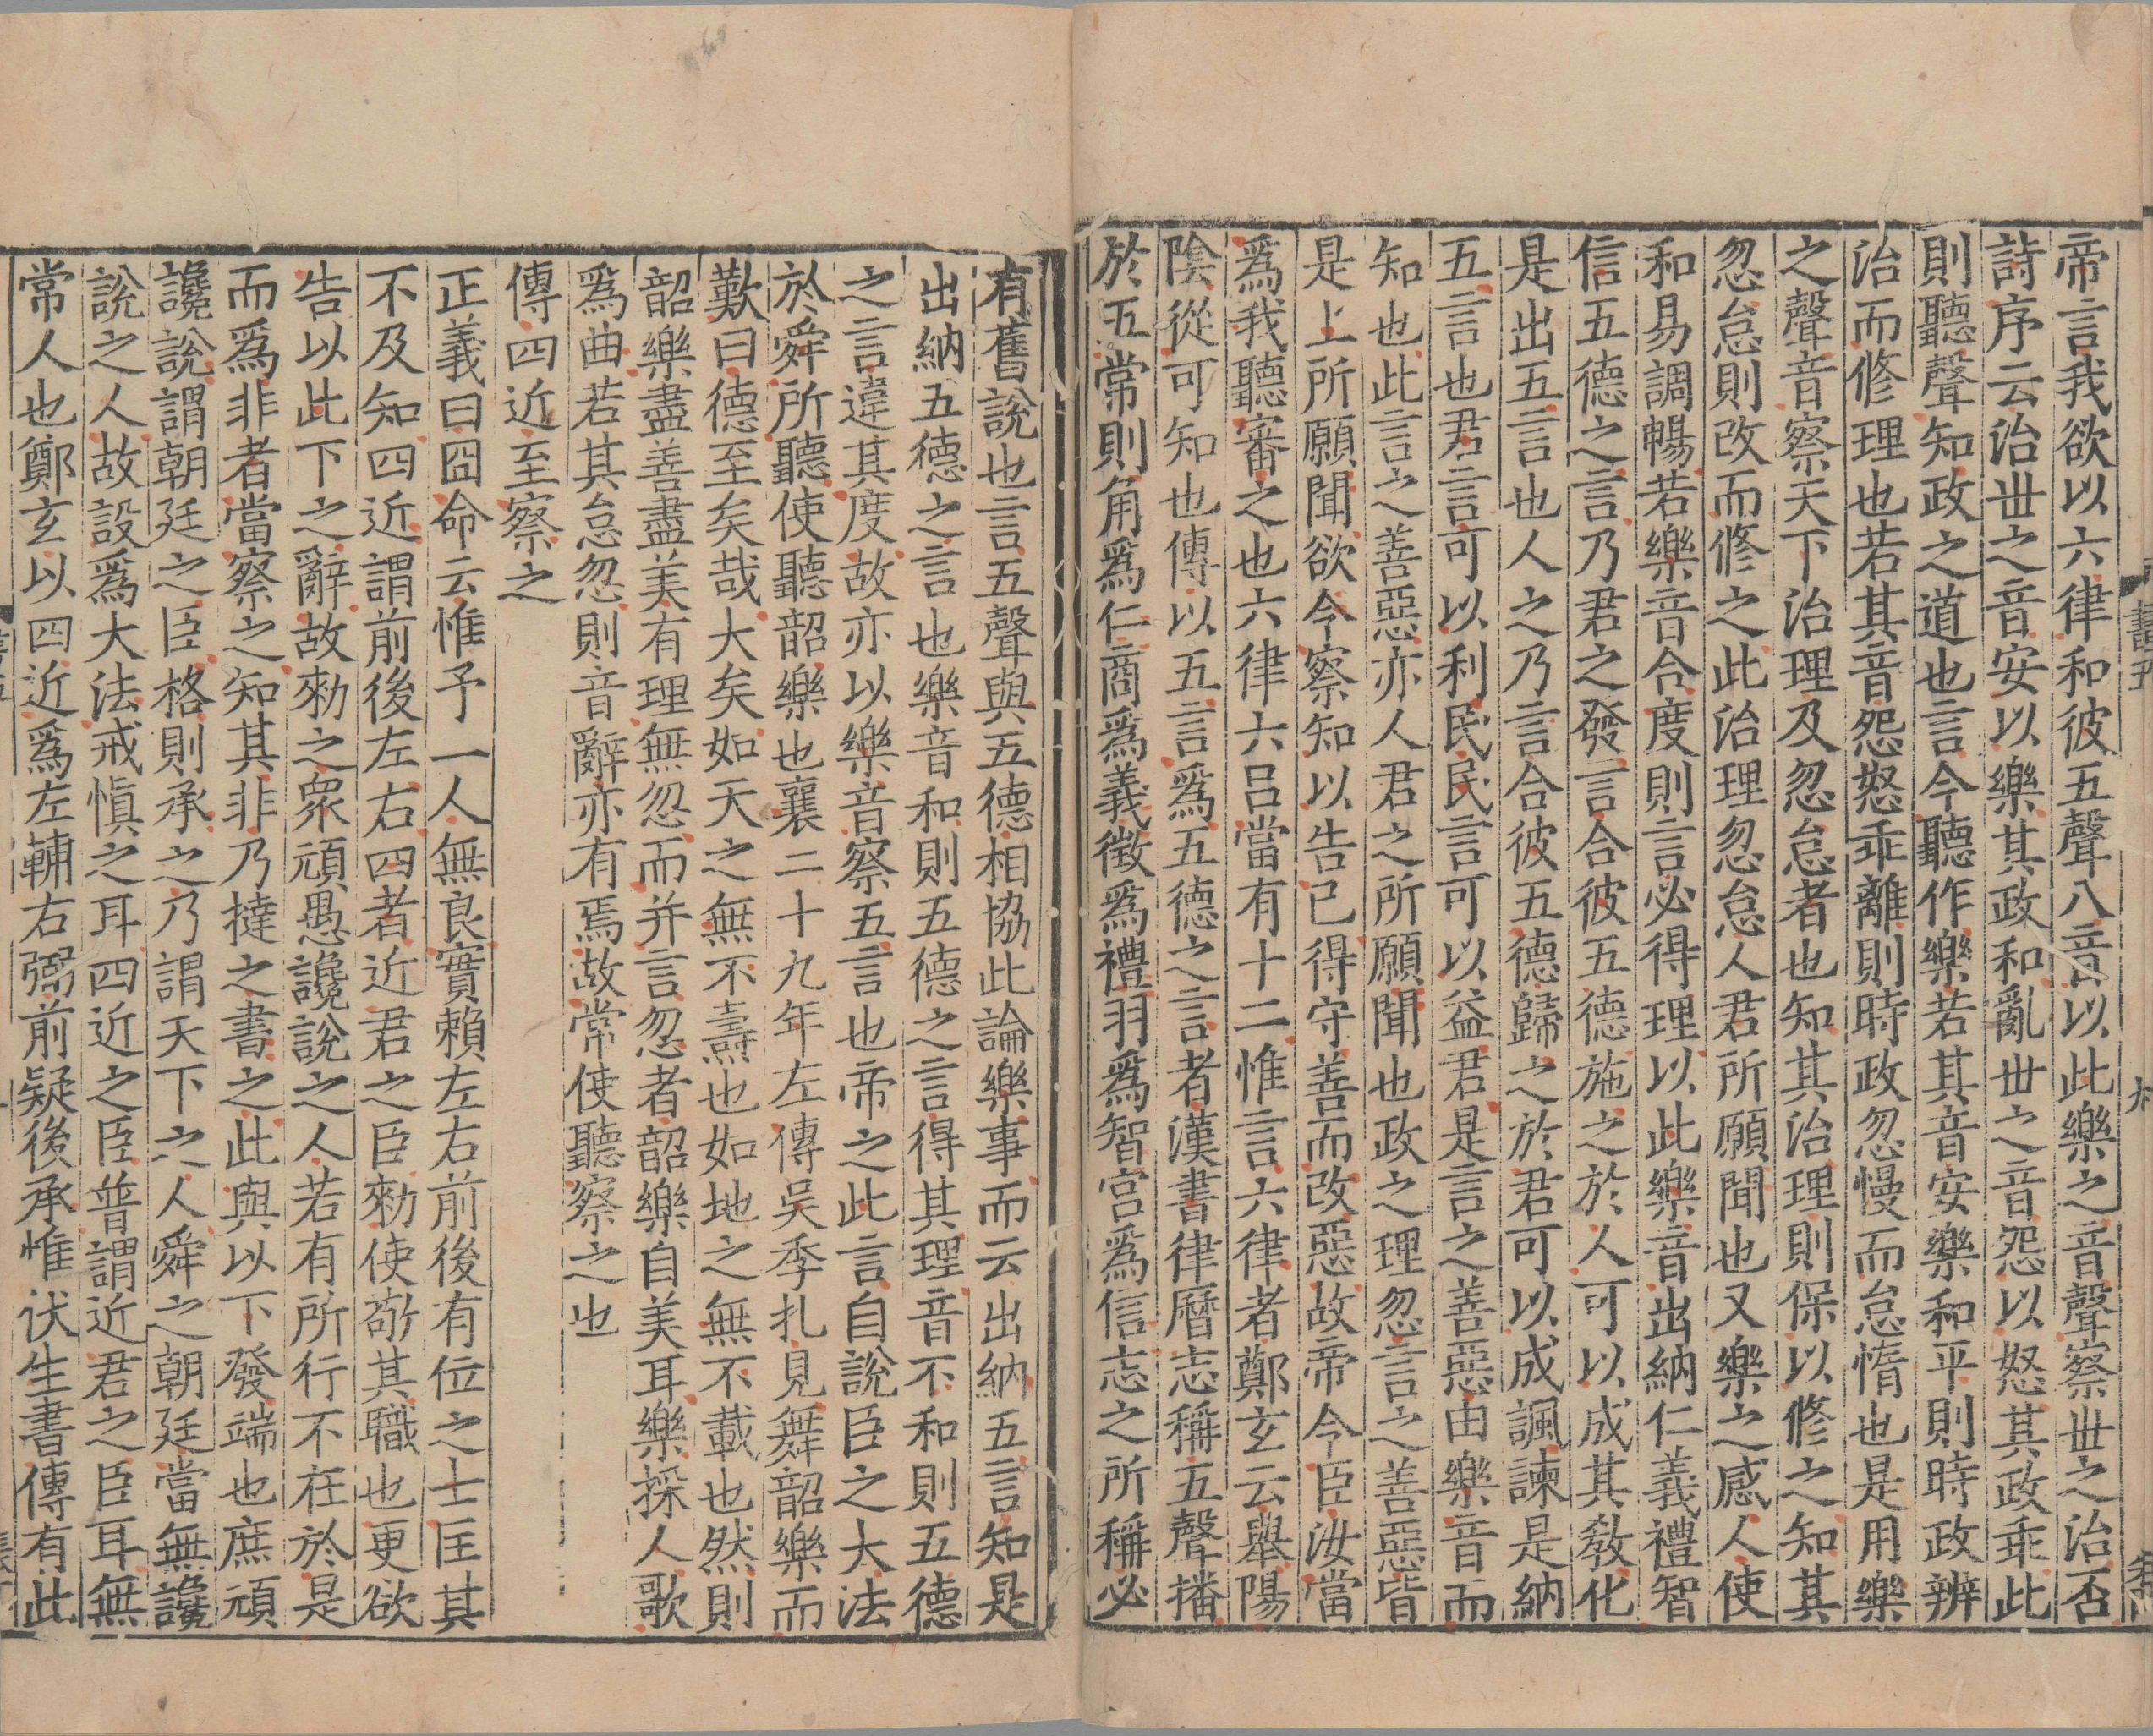 帝言我欲以六律和彼五聲八音以此樂之音聲察丗之治否
詩序云治丗之音安以樂其政和亂丗之音怨以怒其政乖此
則聽聲知政之道也言今聽作樂若其音安樂和平則時政辨
治而修理也若其音怨怒乖離則時政忽慢而怠惰也是用樂
之聲音察天下治理及忽怠者也知其治理則保以修之知其
忽怠則改而修之此治理忽怠人君所願聞也又樂之感人使
和易調暢若樂音合度則言必得理以此樂音出納仁義禮智
信五德之言乃君之發言合彼五德施之於人可以成其敎化
是出五言也人之乃言合彼五德歸之於君可以成諷諫是納
五言也君言可以利民民言可以益君是言之善惡由樂音而
知也此言之善惡亦人君之所願聞也政之理忽言之善惡皆
是上所願聞欲令察知以告己得守善而改惡故帝令臣汝當
爲我聽審之也六律六呂當有十二惟言六律者鄭玄云舉陽
陰從可知也傳以五言爲五德之言者漢書律曆志稱五聲播
於五常則角爲仁商爲義徵爲禮羽爲智宮爲信志之所稱必
有舊說也言五聲與五德相協此論樂事而云出納五言知是
出納五德之言也樂音和則五德之言得其理音不和則五德
之言違其度故亦以樂音察五言也帝之此言自說臣之大法
於舜所聽使聽韶樂也襄二十九年左傳吳季扎見舞韶樂而
歎曰德至矣哉大矣如天之無不燾也如地之無不載也然則
韶樂盡善盡美有理無忽而并言忽者韶樂自美耳樂採人歌
爲曲若其怠忽則音辭亦有焉故常使聽察之也
傳四近至察之
正義曰冏命云惟予一人無良實賴左右前後有位之士匡其
不及知四近謂前後左右四者近君之臣勑使敬其職也更欲
告以此下之辭故勑之衆頑愚讒說之人若有所行不在於是
而爲非者當察之知其非乃撻之書之此與以下發端也庶頑
讒說謂朝廷之臣格則承之乃謂天下之人舜之朝廷當無讒
說之人故設爲大法戒愼之耳四近之臣普謂近君之臣耳無
常人也鄭玄以四近爲左輔右弼前疑後承惟伏生書傳有此